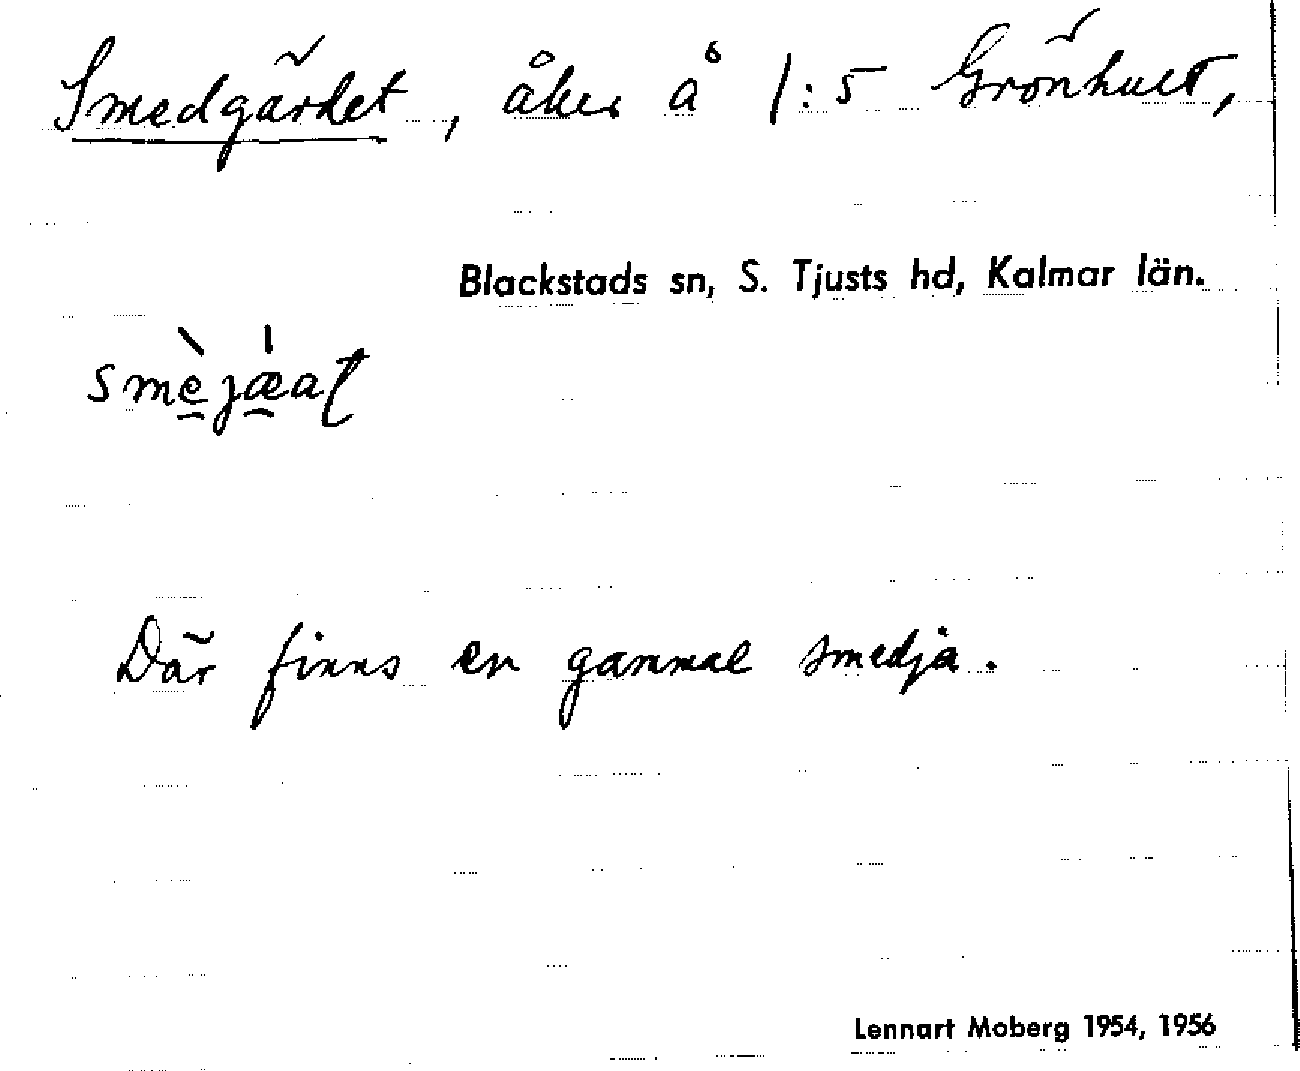 Smedgärdet, åker å 1:5 Grönhult,
Blackstads sn, S. Tjusts hd, Kalmar län.
smèjæat
Där finns en gammal smedja.
Lennart Moberg 1954, 1956